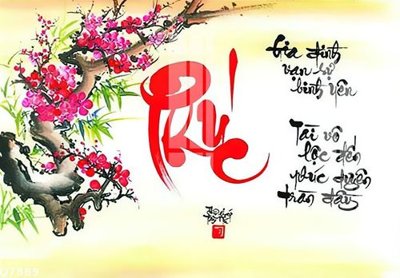 Phúc
Gia đình
vạn sự
bình yên
Tài vô
lộc đến
phúc duyên
tràn đầy